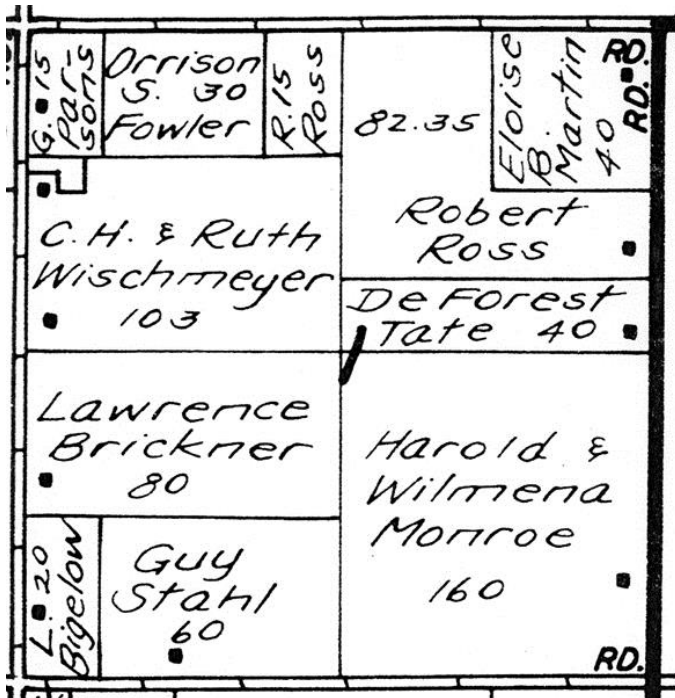 G. 15
Par-
sons
Orrison
S. 30
Fowler
R. 15
Ross
82.35
Robert
Ross
Eloise
B.
Martin
40
RD.
RD.
C.H. & Ruth
Wischmeyer
103
De Forest
Tate 40
Lawrence
Brickner
80
Harold &
Wilmena
Monroe
160
L. 20
Bigelow
Guy
Stahl
60
RD.